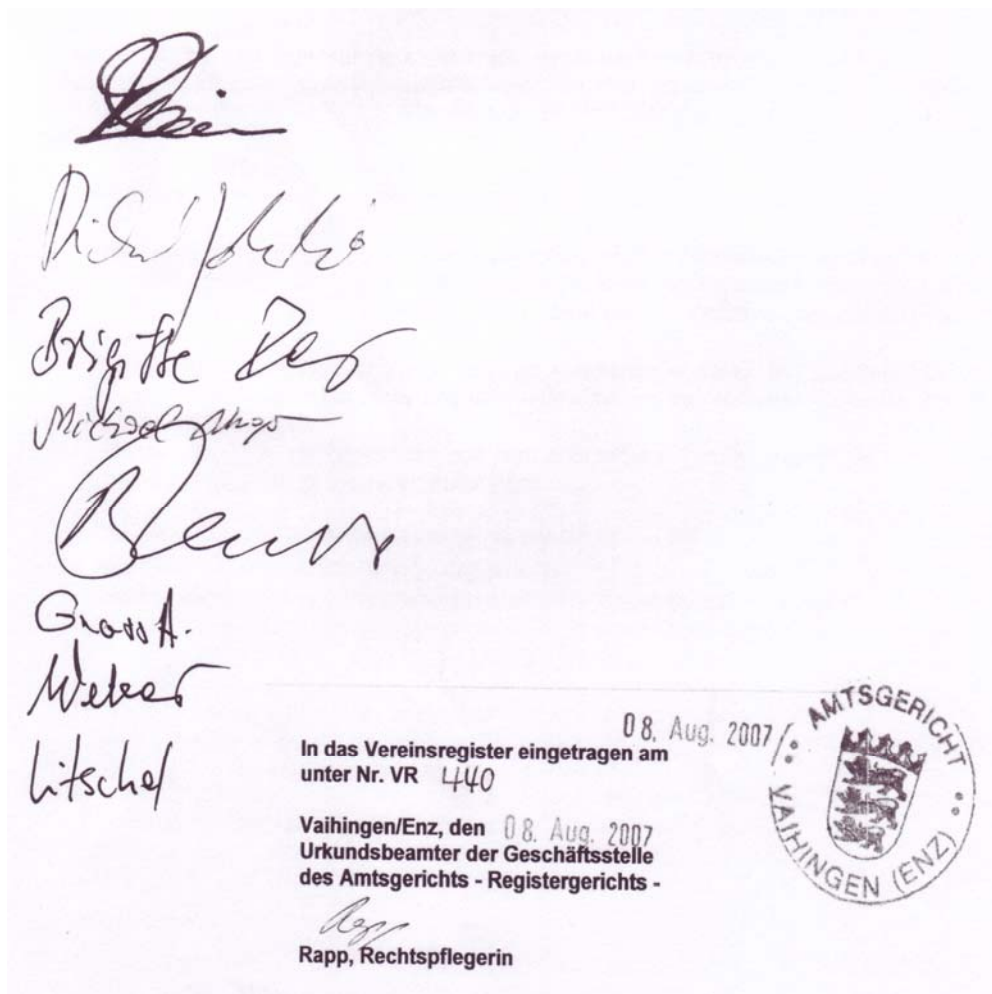 Brigitte
Michael
Gross A.
Weber
Litschel
08. Aug. 2007
In das Vereinsregister eingetragen am
unter Nr. VR 440
Vaihingen/Enz, den 08. Aug. 2007
Urkundsbeamter der Geschäftsstelle
des Amtsgerichts - Registergerichts -
Rapp, Rechtspflegerin
AMTSGERICHT
VAIHINGEN (ENZ)